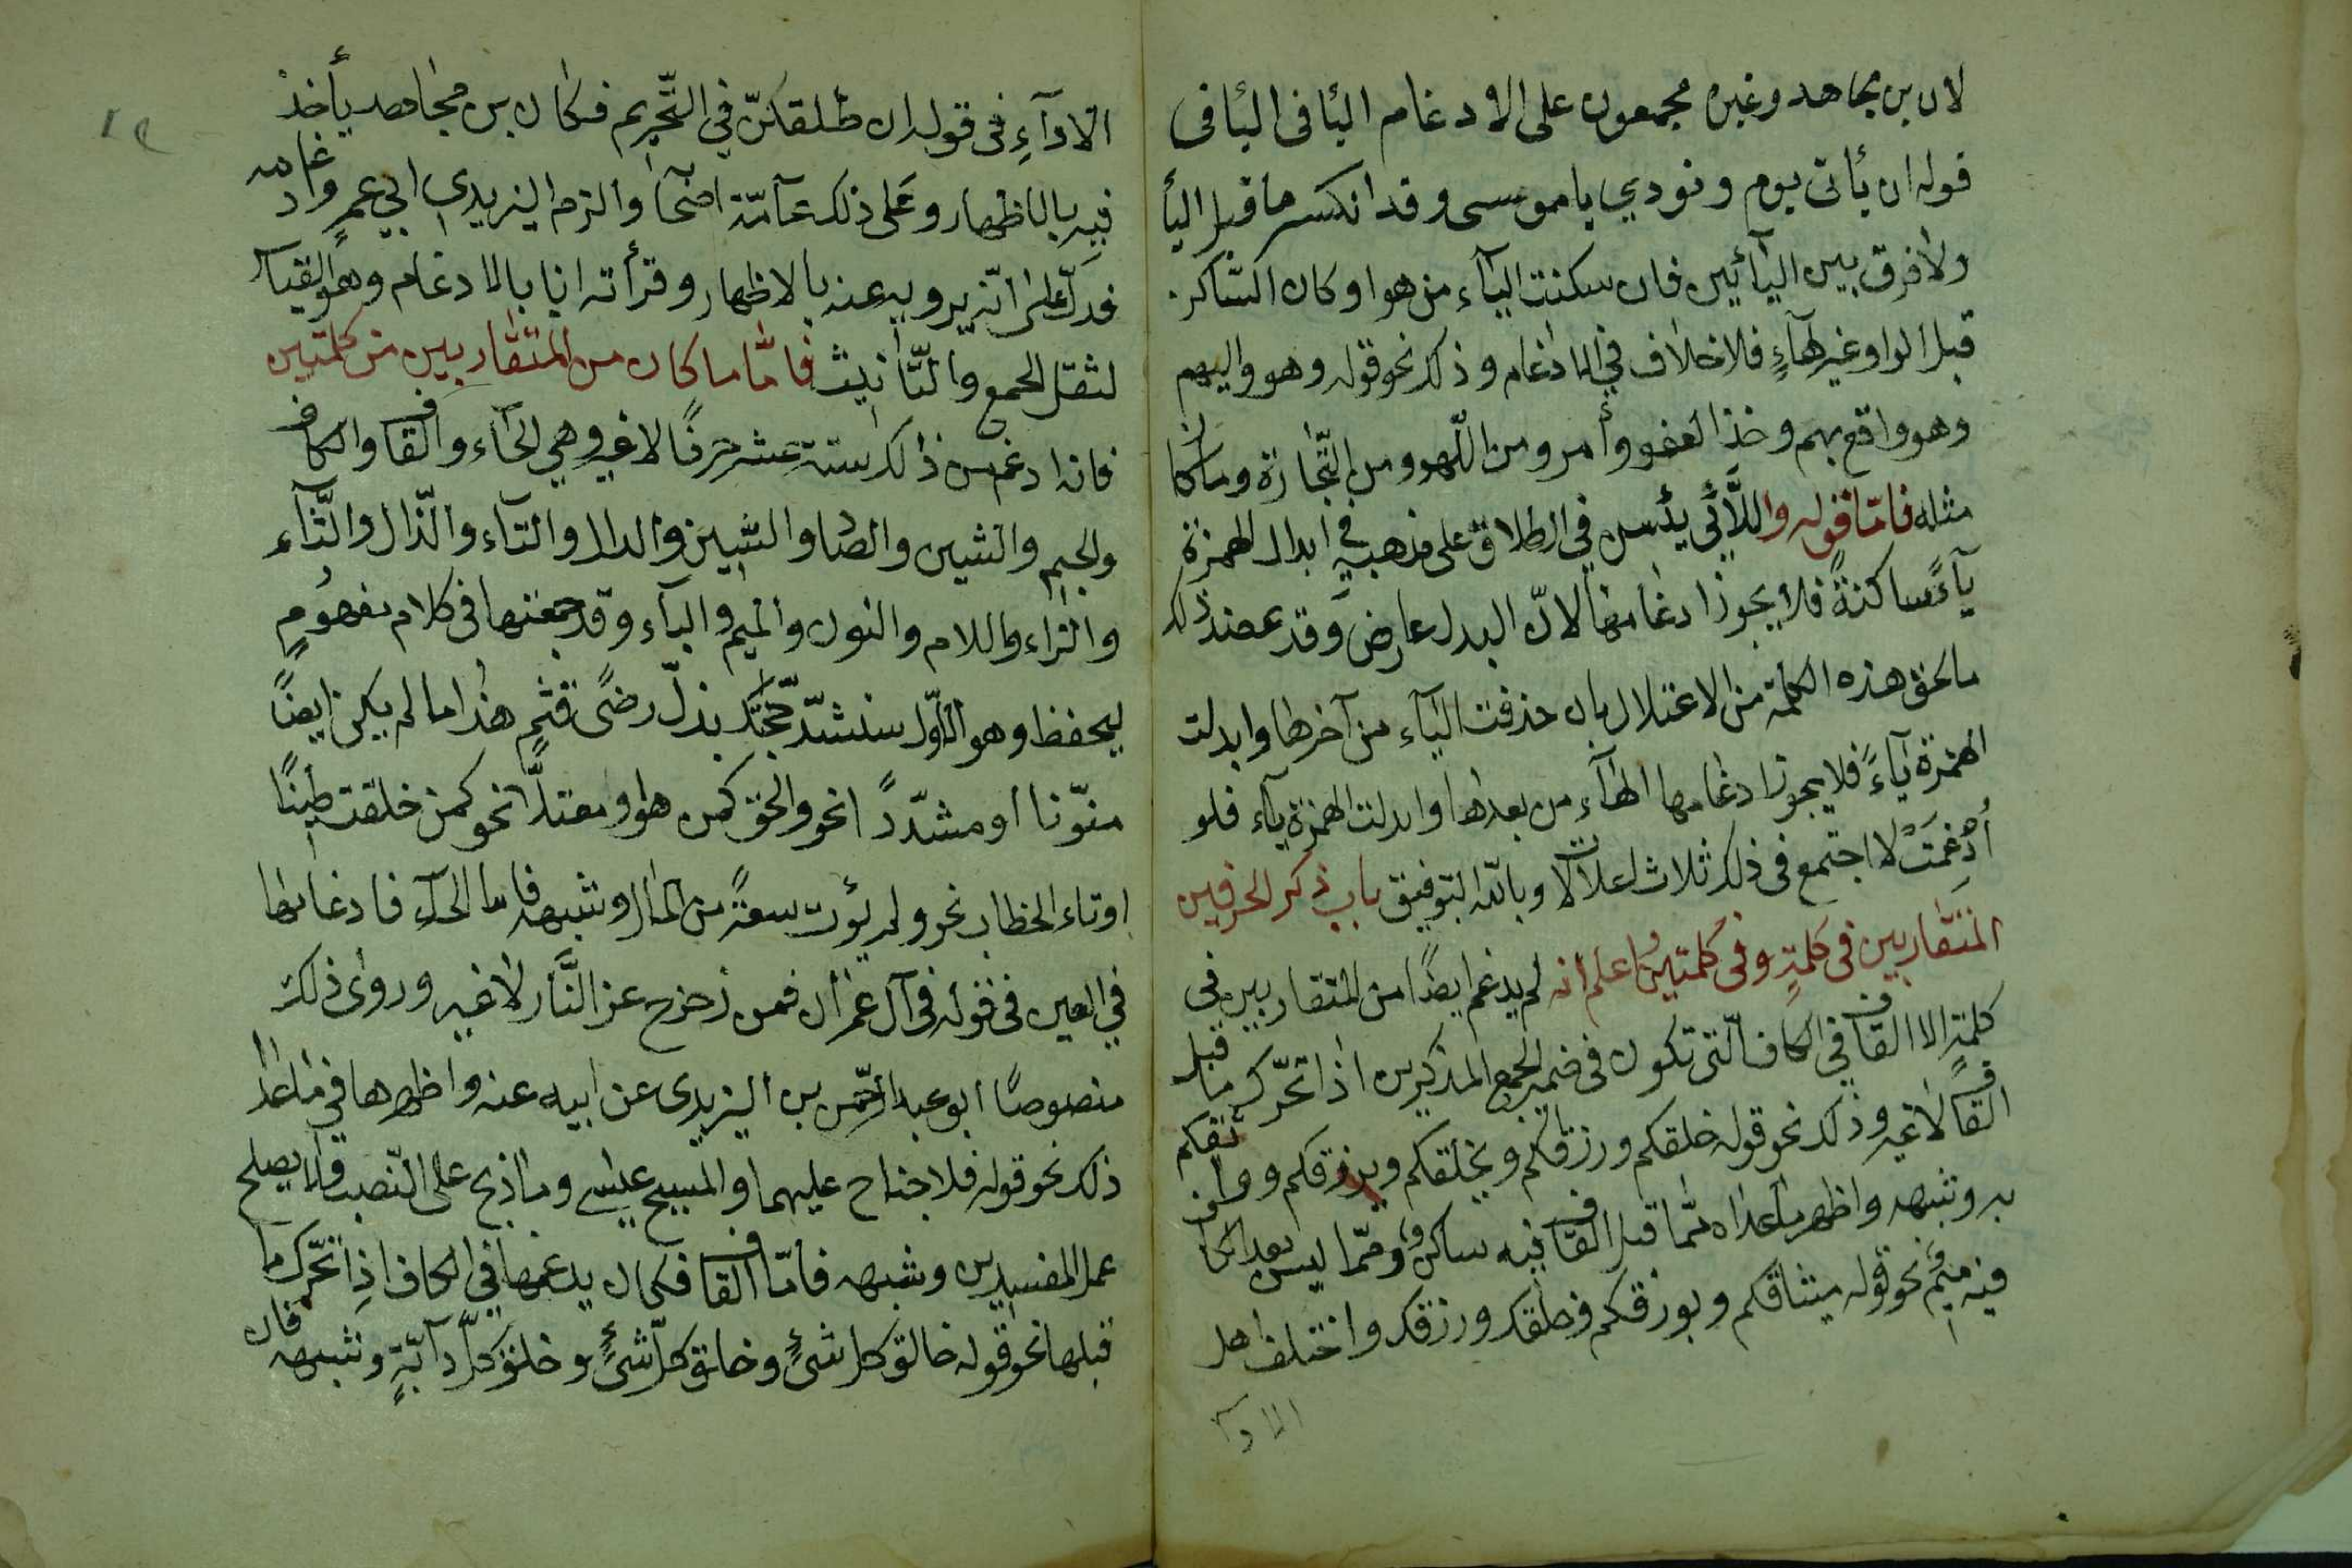 لان بن مجاهد وغيره مجمعون على الادغام الئا فى الئا فى
قوله ان يأتى يوم ونودي ياموسى وقد انكسر ما قبل اليأ
ولا فرق بين اليآئين فان سكنت اليآء من هو او كان الساكن
قبل الواو غير هآءٍ فلا خلاف في الادغام وذلك نحو قوله وهو وليهم
وهو واقع بهم وخذ العفو وأمر ومن اللّهو ومن التّجارة وما كان
مثله فامّا قوله واللّائي يئسن في الطلاق على مذهبه في ابدال الهمزة
يآءً ساكنةً فلا يجوز ادغامها لانّ البدل عارض وقد عضد ذلك
ما لحق هذه الكلمة من الاعتلال بان حذفت اليآء من آخرها وابدلت
الهمزة يآءً فلا يجوز ادغامها الهآء من بعدها وابدلت الهمزة يآء فلو
أُدْغِمَتْ لا اجتمع فى ذلك ثلاث اعلالات وبالله التوفيق باب ذكر الحرفين
المتقاربين فى كلمةٍ وفى كلمتين اعلم انه لم يدغم ايضًا من المتقاربين فى
كلمةٍ الا القاف في الكاف الّتى تكون فى ضمير الجمع المذكرين اذا تحرّك ما قبل
القاف لا غير وذلك نحو قوله خلقكم ورزقكم ويخلقكم ويرزقكم وواثقكم
به وشبهه واظهر ما عداه ممّا قبل القاف فيه ساكن وممّا ليس بعد الكاف
فيه ميم نحو قوله ميثاقكم وبورقكم وخلقك ورزقك واختلف اهل
الادآ
الادآءِ فى قوله ان طلقكنّ في التّحريم فكان بن مجاهد يأخذ
فيه بالاظهار وعلى ذلك عآمّة اصحآ والزم اليزيدى ابي عمرٍو ادغامه
فدلّ على انّه يرويه عنه بالاظهار وقرأته انا بالادغام وهو القياس
لثقل الجمع والتّأنيث فامّا ما كان من المتقاربين من كلمتين
فانه ادغم من ذالك ستة عشر حرفًا لا غير وهي الحآء والقاف والكاف
والجيم والشين والضاد والسّين والدال والتآء والذّال والثّآء
والرّاء واللام والنون والميم والبآء وقد جمعتها فى كلام مفهومٍ
ليحفظ وهو الاوّل سنشدّ حجّتك بذلّ رضًى قثمٍ هذا ما لم يكن ايضًا
منوّنا او مشدّدًا نحو والحق كمن هو او معتلاًّ نحو كمن خلقت طينًا
او تاء الخطاب نحو ولم يؤت سعةً من المال وشبهه فاما الحآء فادغامها
في العين فى قوله فى آل عمران فمن زحزح عن النّار لا غير وروى ذلك
منصوصًا ابو عبد الرّحمن بن اليزيدى عن ابيه عنه واظهرها في ما عدا
ذلك نحو قوله فلا جناح عليهما والمسيح عيسى وما ذبح على النّصب ولا يصلح
عمل المفسدين وشبهه فامّا القاف فكان يدغمها في الكاف اذا تحرّك ما
قبلها نحو قوله خالق كل شئٍ وخلق كلّ شئٍ وخلق كلّ دآبّةٍ وشبهه فان